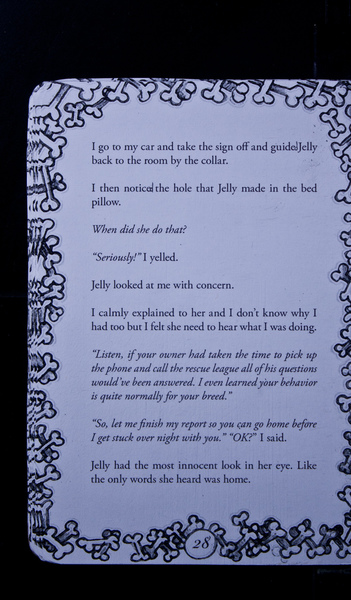 I go to my car and take the sign off and guide Jelly
back to the room by the collar.
I then notice the hole that Jelly made in the bed
pillow.
When did she do that?
"Seriously!" I yelled.
Jelly looked at me with concern.
I calmly explained to her and I don't know why I
had too but I felt she need to hear what I was doing.
"Listen, if your owner had taken the time to pick up
the phone and call the rescue league all of his questions
would've been answered. I even learned your behavior
is quite normally for your breed."
"So, let me finish my report so you can go home before
I get stuck over night with you." "OK?" I said.
Jelly had the most innocent look in her eye. Like
the only words she heard was home.
28